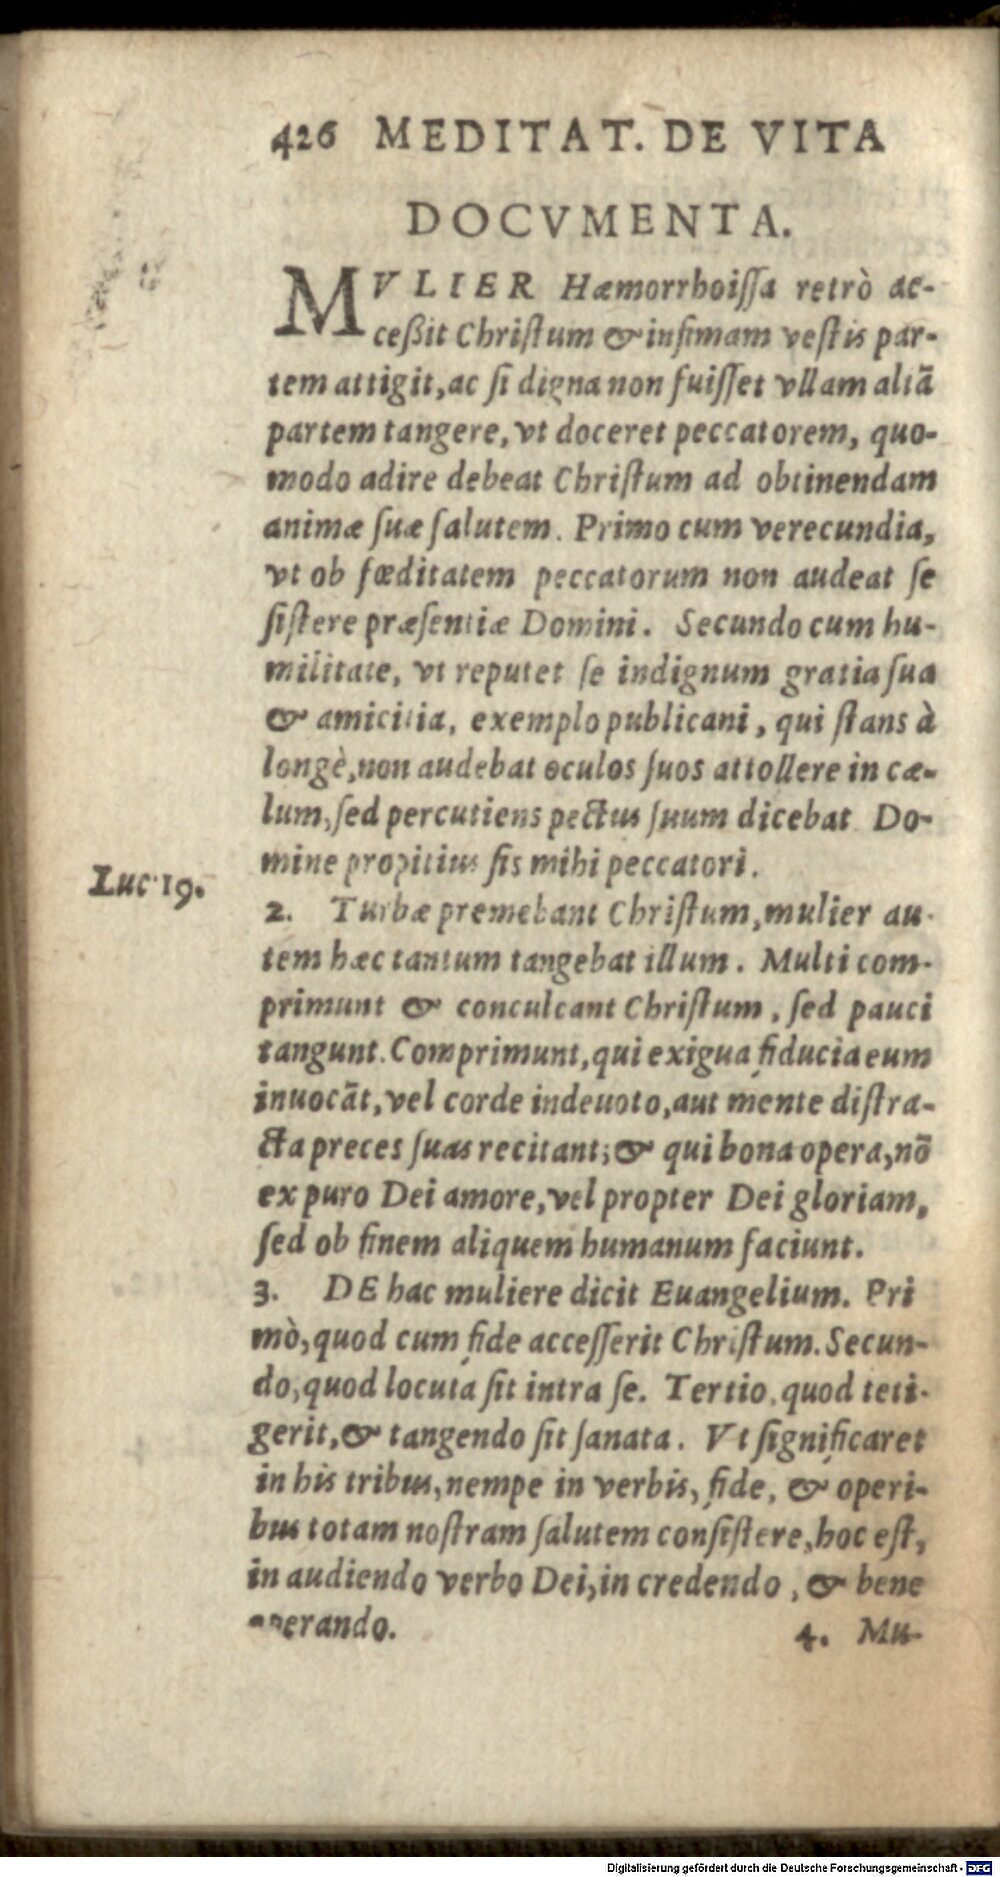 426 MEDITAT. DE VITA
DOCVMENTA.
MVLIER Hæmorrhoiſſa retrò ac-
ceßit Chriſtum & infimam veſtis par-
tem attigit, ac ſi digna non fuiſſet vllam aliã
partem tangere, vt doceret peccatorem, quo-
modo adire debeat Chriſtum ad obtinendam
animæ ſuæ ſalutem. Primo cum verecundia,
vt ob fœditatem peccatorum non audeat ſe
ſiſtere præſentiæ Domini. Secundo cum hu-
militate, vt reputet ſe indignum gratia ſua
& amicitia, exemplo publicani, qui ſtans à
longè, non audebat oculos ſuos attollere in cæ-
lum, ſed percutiens pectus ſuum dicebat Do-
mine propitius ſis mihi peccatori.
Luc 19.
2. Turbæ premebant Chriſtum, mulier au-
tem hæc tantum tangebat illum. Multi com-
primunt & conculcant Chriſtum, ſed pauci
tangunt. Comprimunt, qui exigua fiducia eum
inuocãt, vel corde indeuoto, aut mente diſtra-
cta preces ſuas recitant; & qui bona opera, nõ
ex puro Dei amore, vel propter Dei gloriam,
ſed ob finem aliquem humanum faciunt.
3. DE hac muliere dicit Euangelium. Pri
mò, quod cum fide acceſſerit Chriſtum. Secun-
do, quod locuta ſit intra ſe. Tertio, quod teti-
gerit, & tangendo ſit ſanata. Vt ſignificaret
in his tribus, nempe in verbis, fide, & operi-
bus totam noſtram ſalutem conſiſtere, hoc eſt,
in audiendo verbo Dei, in credendo, & bene
operando.
4. Mu-
Digitalisierung gefördert durch die Deutsche Forschungsgemeinschaft - DFG